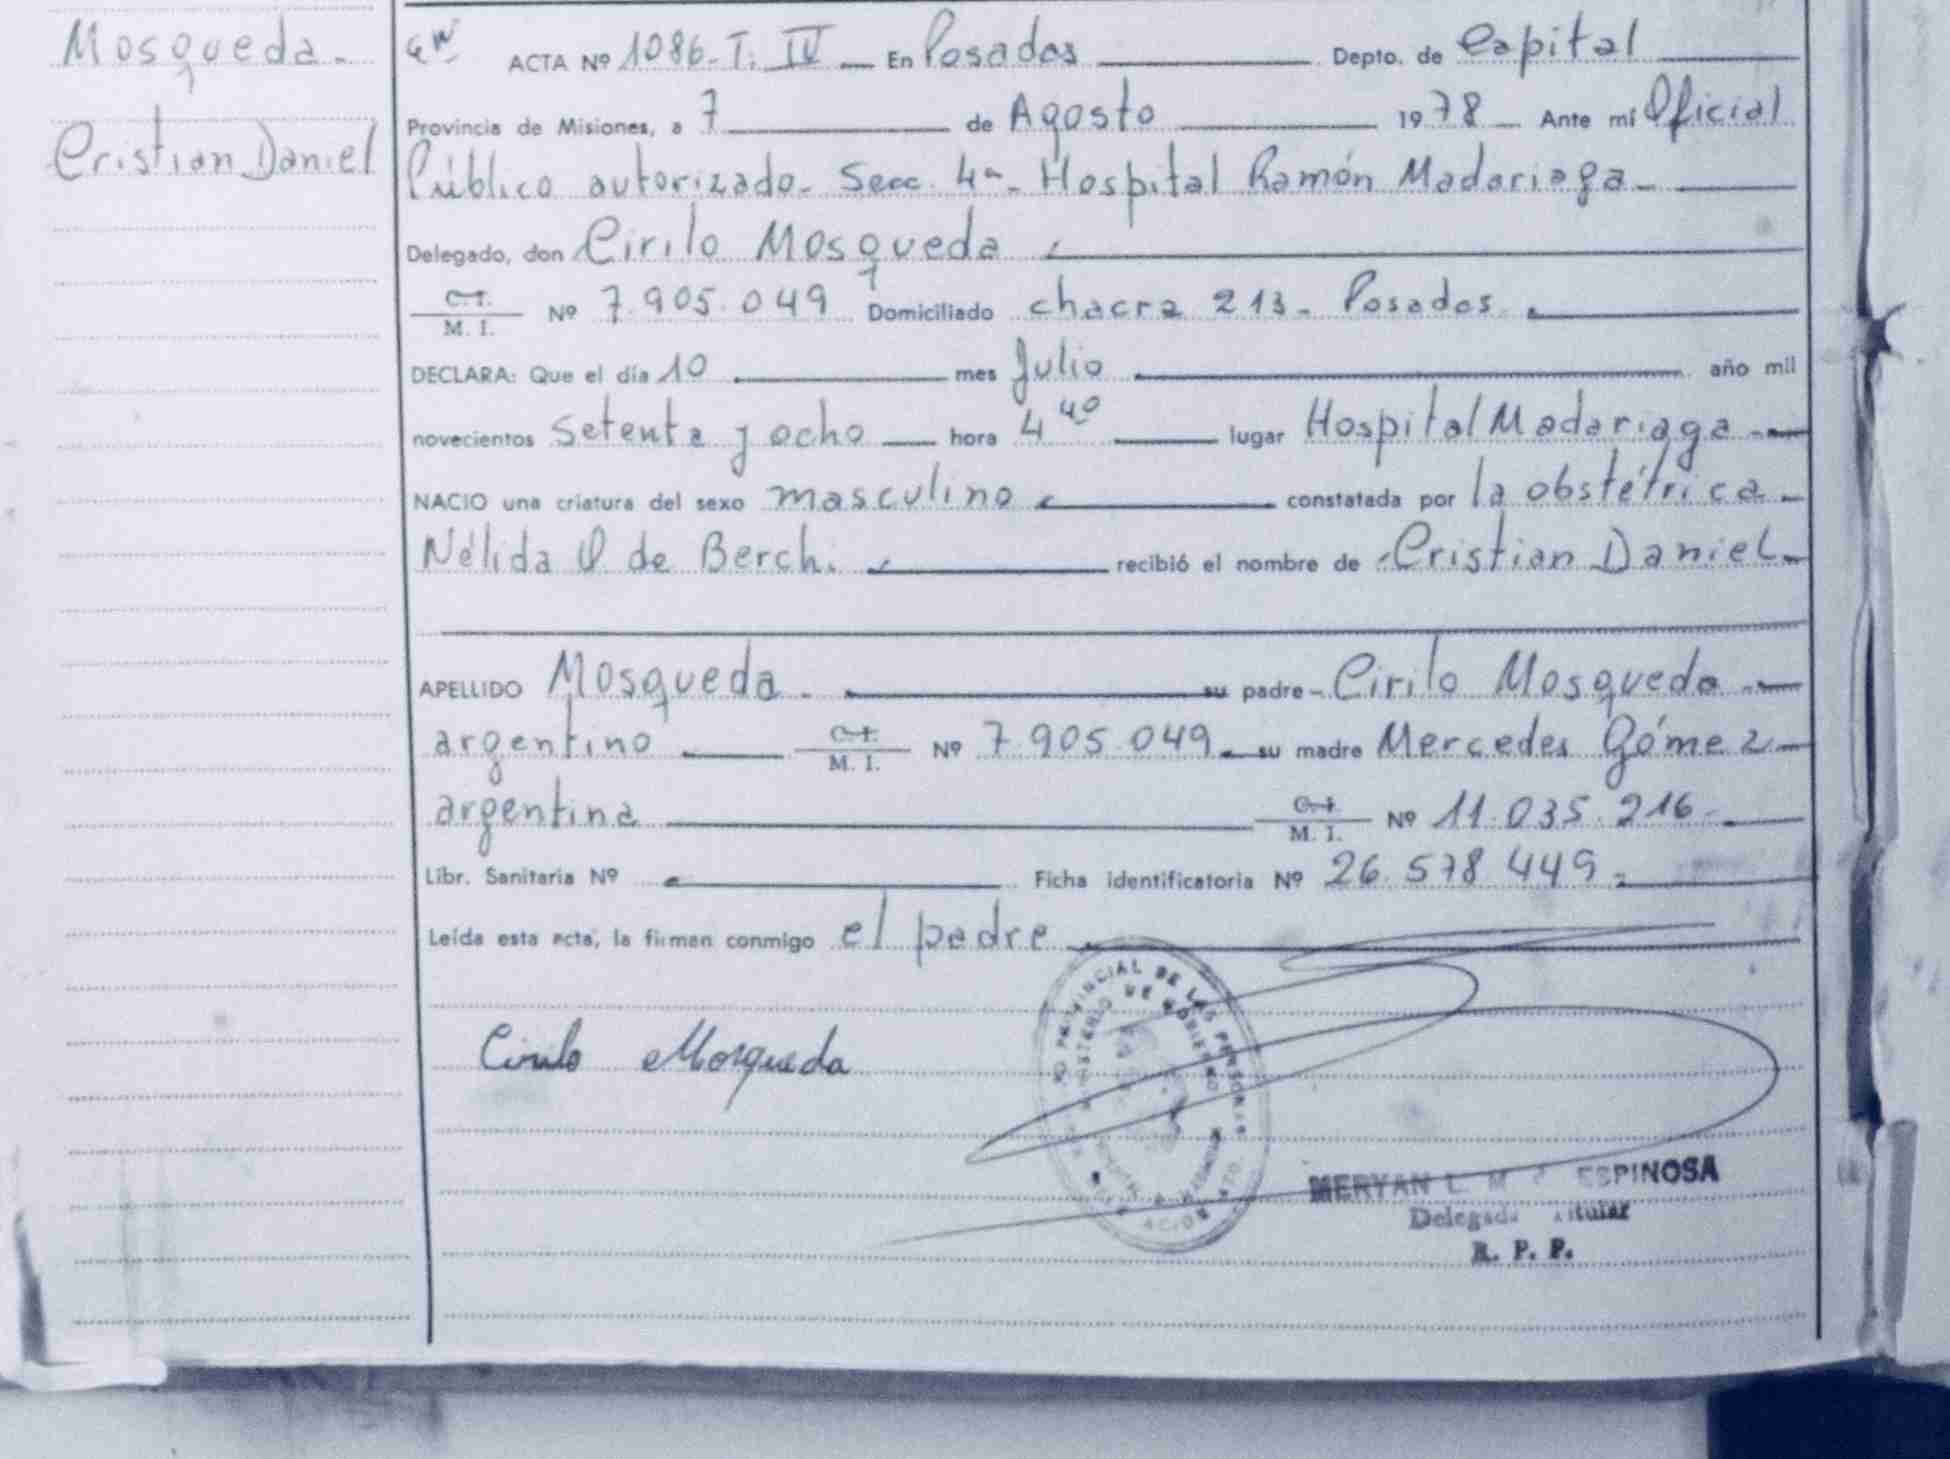 Mosqueda.
Cristian Daniel
ACTA Nº 1086. T. IV En Posadas Depto. de Capital
Provincia de Misiones, a 7 de Agosto 1978 Ante mí Oficial
Público autorizado. Secc. 4ª. Hospital Ramón Madariaga.
Delegado, don Cirilo Mosqueda
C. I.
M. I. Nº 7.905.049 Domiciliado chacra 213. Posadas.
DECLARA: Que el día 10 mes Julio año mil
novecientos setenta y ocho hora 4 40 lugar Hospital Madariaga
NACIO una criatura del sexo masculino constatada por la obstétrica
Nélida O de Berch. recibió el nombre de Cristian Daniel
APELLIDO Mosqueda. su padre Cirilo Mosqueda
argentino C. I.
M. I. Nº 7.905.049. su madre Mercedes Gómez
argentina C. I.
M. I. Nº 11.035.216
Libr. Sanitaria Nº Ficha identificatoria Nº 26.578.449
Leída esta acta, la firman conmigo el padre
Cirilo Mosqueda
PROVINCIAL DE LAS PERSONAS
MINISTERIO DE GOBIERNO
MERYAN L. M. ESPINOSA
Delegada Titular
R. P. P.